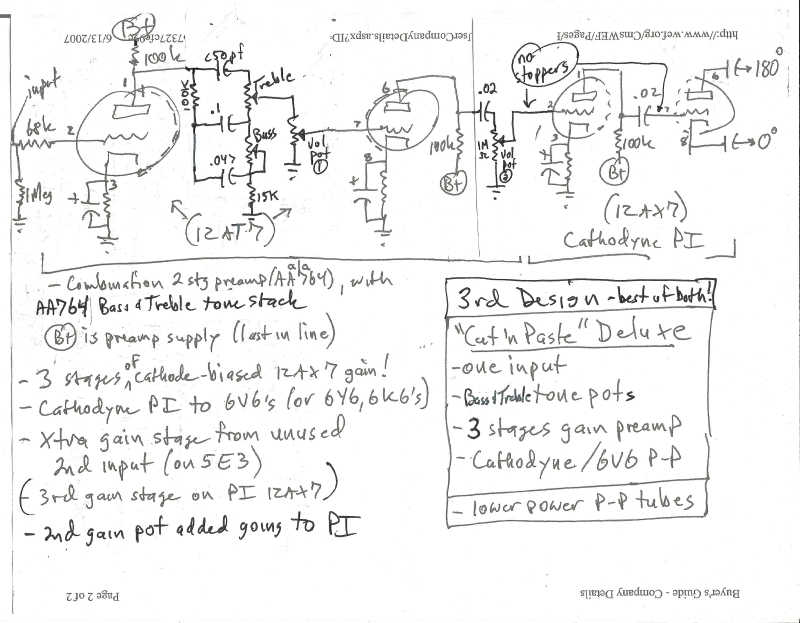 http://www.wef.org/CmsWEF/Pages/I
JserCompanyDetails.aspx?ID=
6/13/2007
B+
100k
input
68k
2
1
3
+
1Meg
100k
<50pf
.1
.047
Treble
Bass
15K
Vol. pot ①
(12AT7)
7
6
8
+
100k
B+
.02
1M Ω
Vol pot ②
no stoppers
2
1
3
+
100k
B+
.02
7
6
8
180°
0°
(12AX7)
Cathodyne PI
- Combination 2 stg preamp (AA764), with
a/a
AA764 Bass & Treble tone stack
B+ is preamp supply (last in line)
- 3 stages of cathode-biased 12AX7 gain!
- Cathodyne PI to 6V6's (or 6Y6, 6K6's)
- Xtra gain stage from unused
2nd input (on 5E3)
(3rd gain stage on PI 12AX7)
- 2nd gain pot added going to PI
3rd Design - best of both!
"Cut'n Paste" Deluxe
- one input
- Bass & Treble tone pots
- 3 stages gain preamp
- Cathodyne/6V6 P-P
- lower power P-P tubes
Page 2 of 2
Buyer's Guide - Company Details